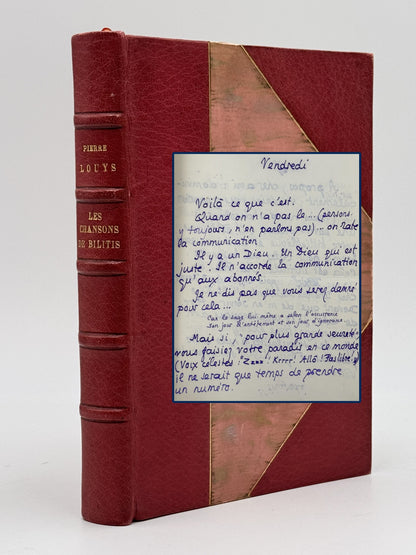 PIERRE
LOUYS
LES
CHANSONS
DE BILITIS
Vendredi
Voilà ce que c'est.
Quand on n'a pas le... (pensons
y toujours, n'en parlons pas)... on rate
la communication.
Il y a un Dieu. Un Dieu qui est
juste. Il n'accorde la communication
qu'aux abonnés.
Je ne dis pas que vous serez damné
pour cela...
Car le sage lui même a selon
son jour d'entêtement et son jour d'ignorance.
Mais si, "pour plus grande seureté"
vous faisiez votre paradis en ce monde
(Voix célestes: "Zzzz"! Krrrr! Allô! Pas libre!)
il ne serait que temps de prendre
un numéro.